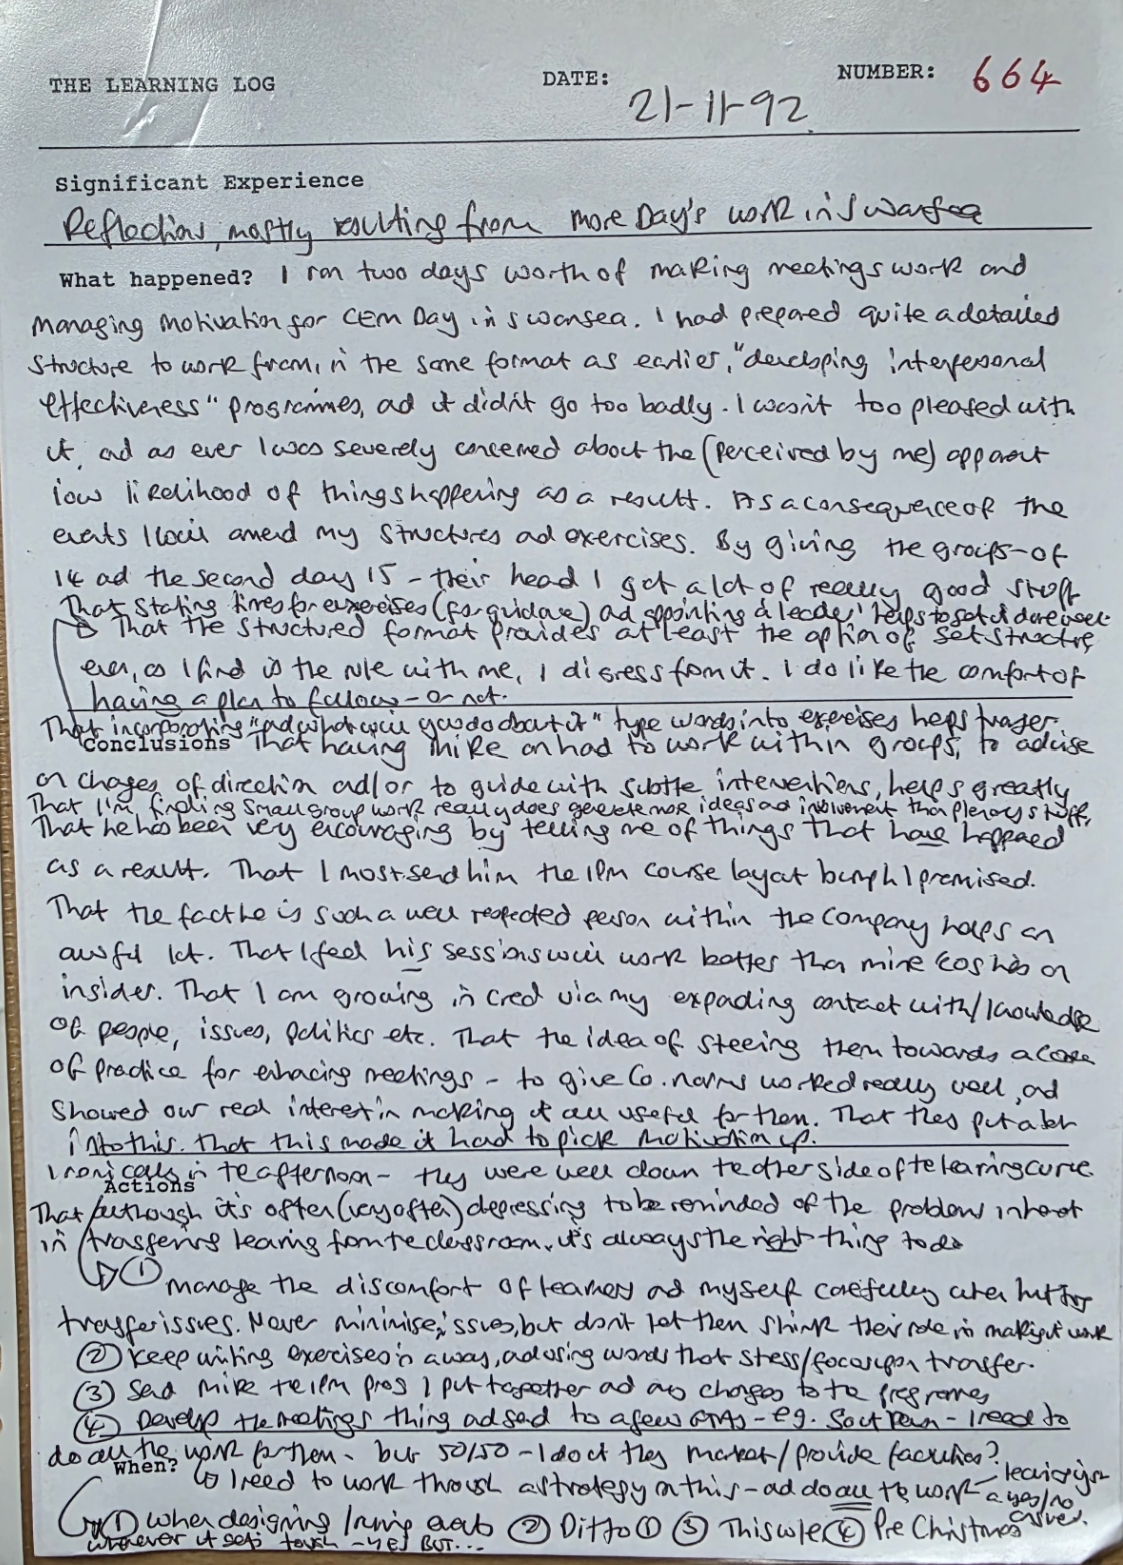 THE LEARNING LOG DATE: 21-11-92 NUMBER: 664
Significant Experience
Reflections, mostly resulting from more Day's work in Swansea
What happened? I ran two days worth of making meetings work and
managing motivation for CEM Day in Swansea. I had prepared quite a detailed
structure to work from, in the same format as earlier, "developing interpersonal
effectiveness" programmes, and it didn't go too badly. I wasn't too pleased with
it, and as ever I was severely concerned about the (perceived by me) apparent
low likelihood of things happening as a result. As a consequence of the
events I will amend my structures and exercises. By giving the groups - of
14 and the second day 15 - their head I got a lot of really good stuff
That stating times for exercises (for guidance) and appointing a 'leader' helps to set
That the structured format provides at least the option of set structure,
even, as I find is the rule with me, I digress from it. I do like the comfort of
having a plan to follow - or not.
That incorporating "and what will you do about it" type words into exercises helps transfer.
Conclusions That having Mike on hand to work within groups, to advise
on changes of direction and/or to guide with subtle interventions, helps greatly
That I'm finding small group work really does generate more ideas and involvement than plenary stuff.
That he has been very encouraging by telling me of things that have happened
as a result. That I must send him the IPM course layout bumph I promised.
That the fact he is such a well respected person within the company helps an
awful lot. That I feel his sessions will work better than mine cos he's an
insider. That I am growing in cred via my expanding contact with/knowledge
of people, issues, politics etc. That the idea of steering them towards a code
of practice for enhancing meetings - to give Co. norms worked really well, and
showed our real interest in making it all useful for them. That they put a lot
into this. That this made it hard to pick motivation up.
Ironically in the afternoon - they were well down the other side of the learning curve
Actions
That although it's often (very often) depressing to be reminded of the problems inherent
in transferring learning from the classroom, it's always the right thing to do
① Manage the discomfort of learners and myself carefully when
transfer issues. Never minimise issues, but don't let them shirk their role in making it work
② Keep writing exercises in a way, and using words that stress/focus upon transfer.
③ Send Mike the IPM prog I put together and any changes to the programmes
④ Develop the meetings thing and send to a few - eg. - I need to
do all the work for them - but 50/50 - I do it they market/provide facilities?
When? I need to work through a strategy on this - and do all the work - leaving just
a yes/no
answer.
① When designing/running events ② Ditto ① ③ This week ④ Pre Christmas
whenever it gets tough - yes BUT...